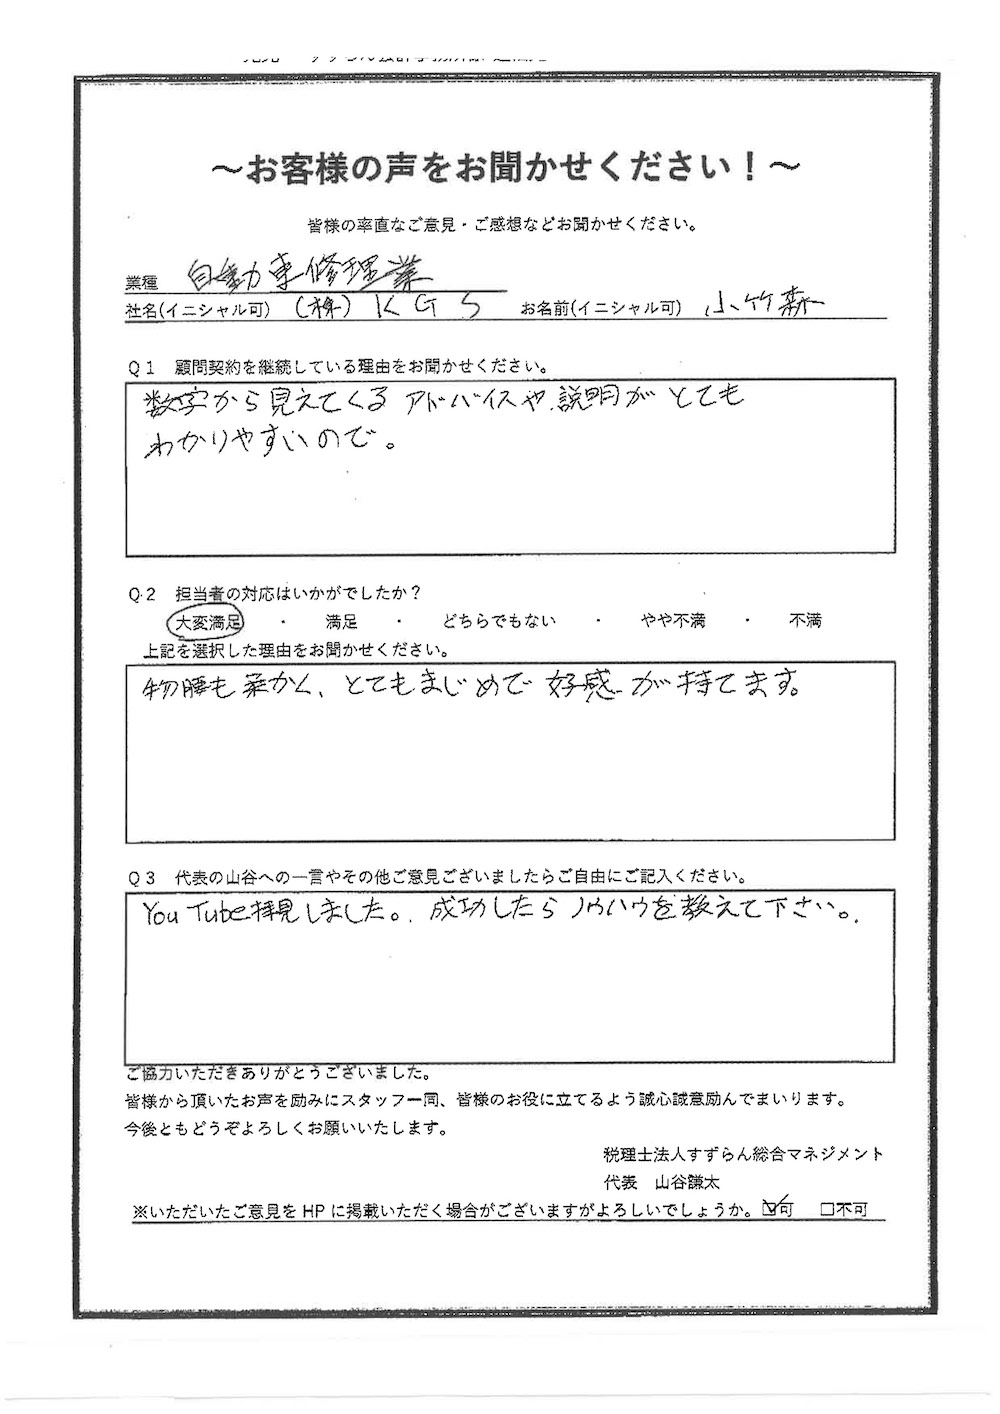 ～お客様の声をお聞かせください！～
皆様の率直なご意見・ご感想などお聞かせください。
業種 自動車修理業
社名(イニシャル可) (株) KGS お名前(イニシャル可) 小竹森
Q1 顧問契約を継続している理由をお聞かせください。
数字から見えてくるアドバイスや、説明がとても
わかりやすいので。
Q.2 担当者の対応はいかがでしたか？
大変満足 ・ 満足 ・ どちらでもない ・ やや不満 ・ 不満
上記を選択した理由をお聞かせください。
物腰も柔かく、とてもまじめで好感が持てます。
Q3 代表の山谷への一言やその他ご意見ございましたらご自由にご記入ください。
YouTube拝見しました。成功したらノウハウを教えて下さい。
ご協力いただきありがとうございました。
皆様から頂いたお声を励みにスタッフ一同、皆様のお役に立てるよう誠心誠意励んでまいります。
今後ともどうぞよろしくお願いいたします。
税理士法人すずらん総合マネジメント
代表 山谷謙太
※いただいたご意見をHPに掲載いただく場合がございますがよろしいでしょうか。☑可 □不可